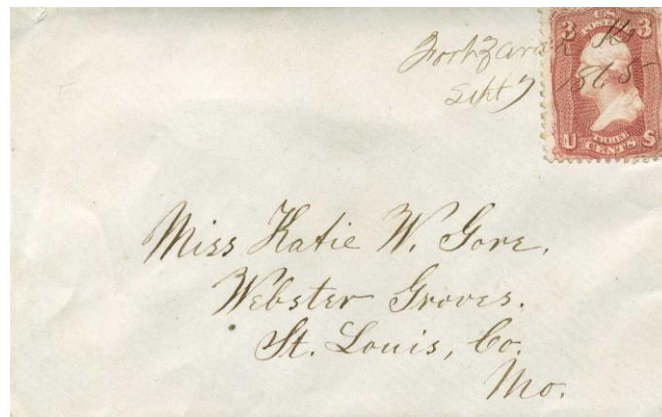 Fort Zarah Ks
Sept 7 1865
3 U.S. 3
POSTAGE
U THREE S
CENTS
Miss Katie W. Gore.
Webster Groves.
St. Louis, Co.
Mo.